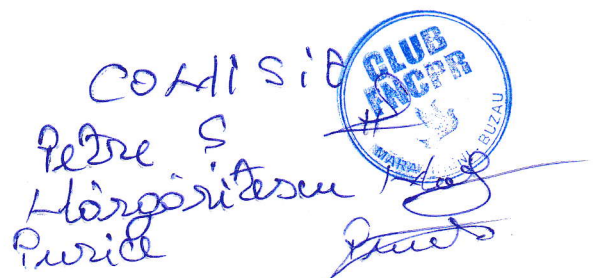 COMISIA
CLUB
FNCPR
BUZAU
Petre S
Mărgăritescu
Purice